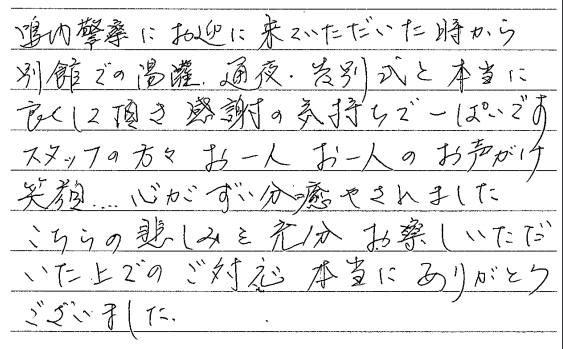 鳴内警察にお迎に来ていただいた時から
別館での湯灌、通夜・告別式と本当に
良くして頂き感謝の気持ちで一ぱいです
スタッフの方々 お一人お一人のお声がけ
笑顔....心がずい分癒やされました
こちらの悲しみを充分お察しいただ
いた上でのご対応 本当にありがとう
ございました.